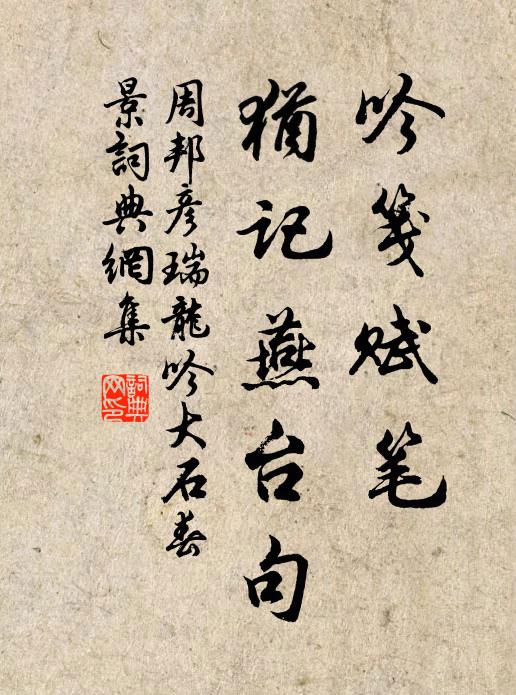 吟笺赋笔
犹记燕台句
周邦彦瑞龍吟大石春
景詞典網集
詞典网印